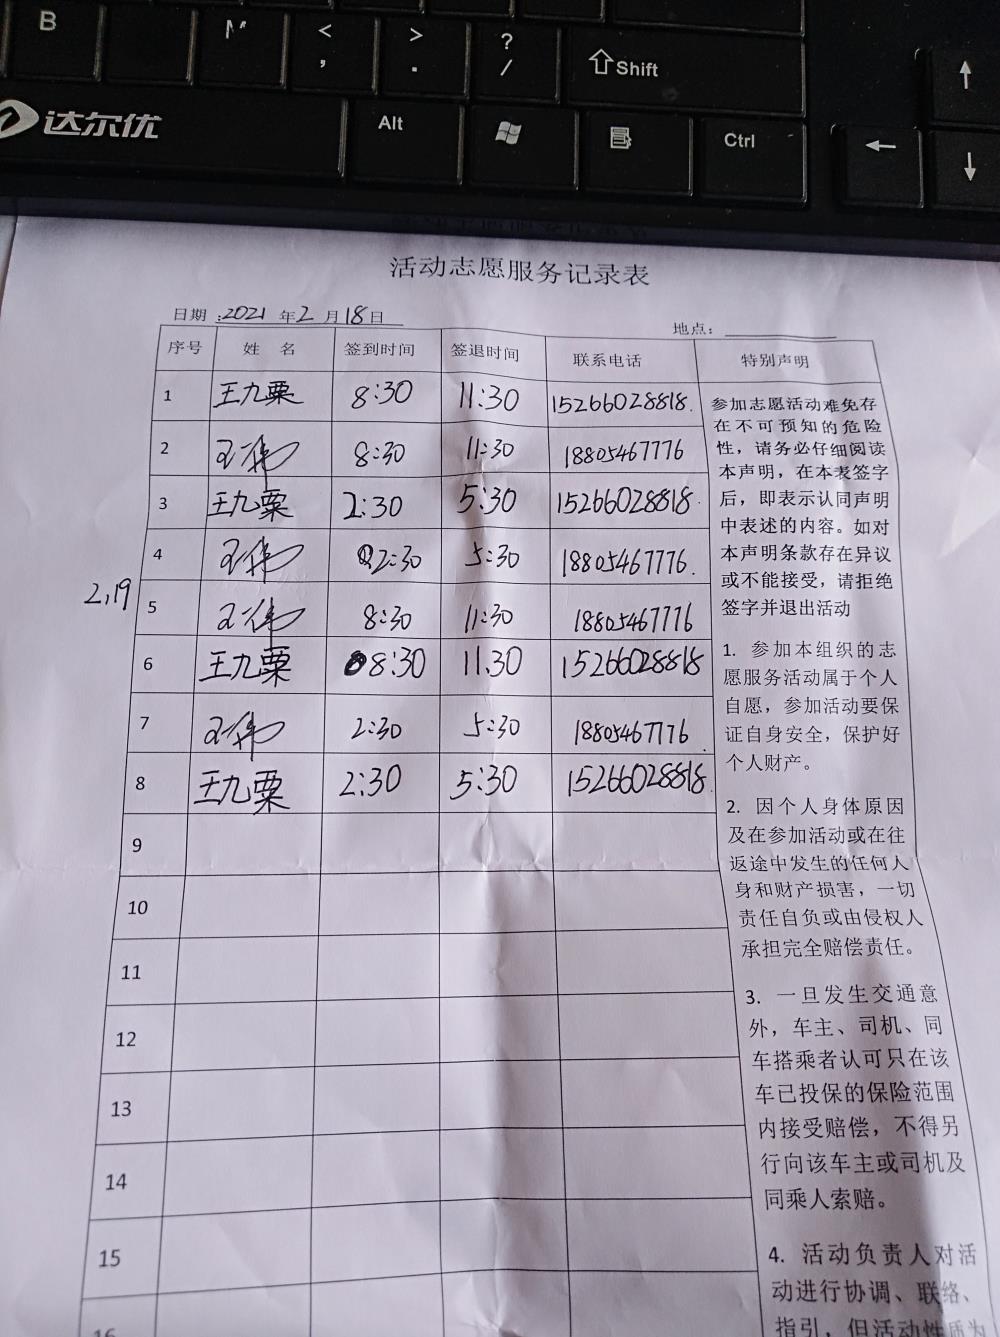 B
M
<
,
>
.
?
/
Shift
达尔优
Alt
Ctrl
活动志愿服务记录表
日期:2021年2月18日
地点:
序号 姓 名 签到时间 签退时间 联系电话 特别声明
1 王九粟 8:30 11:30 15266028818
2 王伟 8:30 11:30 18805467776
3 王九粟 2:30 5:30 15266028818
4 王伟 2:30 5:30 18805467776
2,19
5 王伟 8:30 11:30 18805467776
6 王九粟 8:30 11.30 15266028818
7 王伟 2:30 5:30 18805467776
8 王九粟 2:30 5:30 15266028818
9
10
11
12
13
14
15
16
参加志愿活动难免存
在不可预知的危险
性，请务必仔细阅读
本声明，在本表签字
后，即表示认同声明
中表述的内容。如对
本声明条款存在异议
或不能接受，请拒绝
签字并退出活动
1. 参加本组织的志
愿服务活动属于个人
自愿，参加活动要保
证自身安全，保护好
个人财产。
2. 因个人身体原因
及在参加活动或在往
返途中发生的任何人
身和财产损害，一切
责任自负或由侵权人
承担完全赔偿责任。
3. 一旦发生交通意
外，车主、司机、同
车搭乘者认可只在该
车已投保的保险范围
内接受赔偿，不得另
行向该车主或司机及
同乘人索赔。
4. 活动负责人对活
动进行协调、联络、
指引，但活动性质为